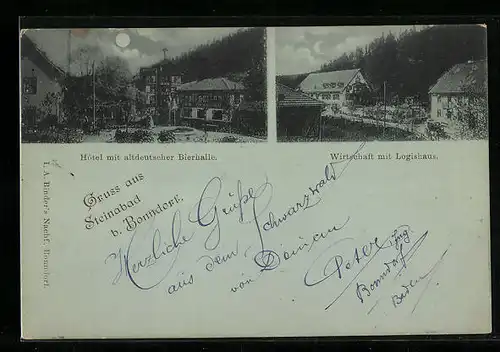 Hôtel mit altdeutscher Bierhalle.
Wirtschaft mit Logishaus.
Gruss aus
Steinabad
b. Bonndorf.
I. A. Binder's Nachf., Bonndorf.
Herzliche Grüße
aus dem Schwarzwald
von
Peter
Bonndorf
Baden